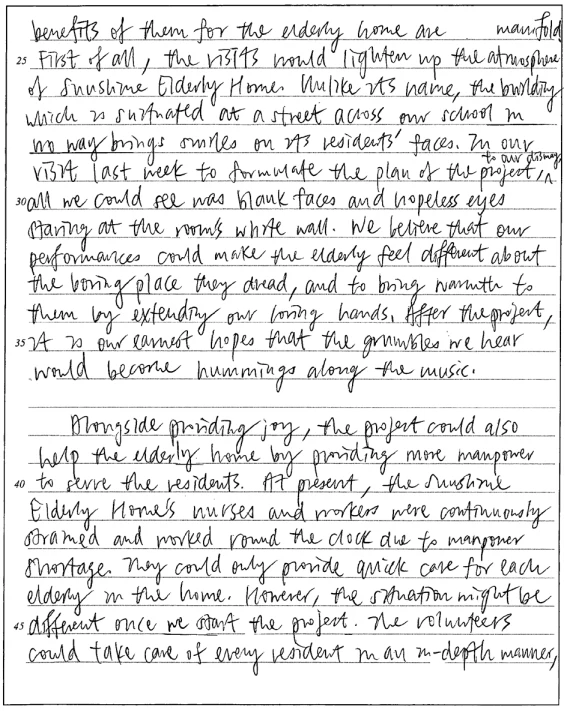 benefits of them for the elderly home are manifold
25 First of all, the visits would lighten up the atmosphere
of Sunshine Elderly Home. Unlike its name, the building
which is surtuated at a street across our school in
no way brings smiles on its residents' faces. In our
visit last week to formulate the plan of the project, to our dismay
30 all we could see was blank faces and hopeless eyes
staring at the room's white wall. We believe that our
performances could make the elderly feel different about
the boring place they dread, and to bring warmth to
them by extending our loving hands. After the project,
35 it is our earnest hopes that the grumbles we hear
would become hummings along the music.
Alongside providing joy, the project could also
help the elderly home by providing more manpower
40 to serve the residents. At present, the Sunshine
Elderly Home's nurses and workers were continuously
strained and worked round the clock due to manpower
shortage. They could only provide quick care for each
elderly in the home. However, the situation might be
45 different once we start the project. The volunteers
could take care of every resident in an in-depth manner,